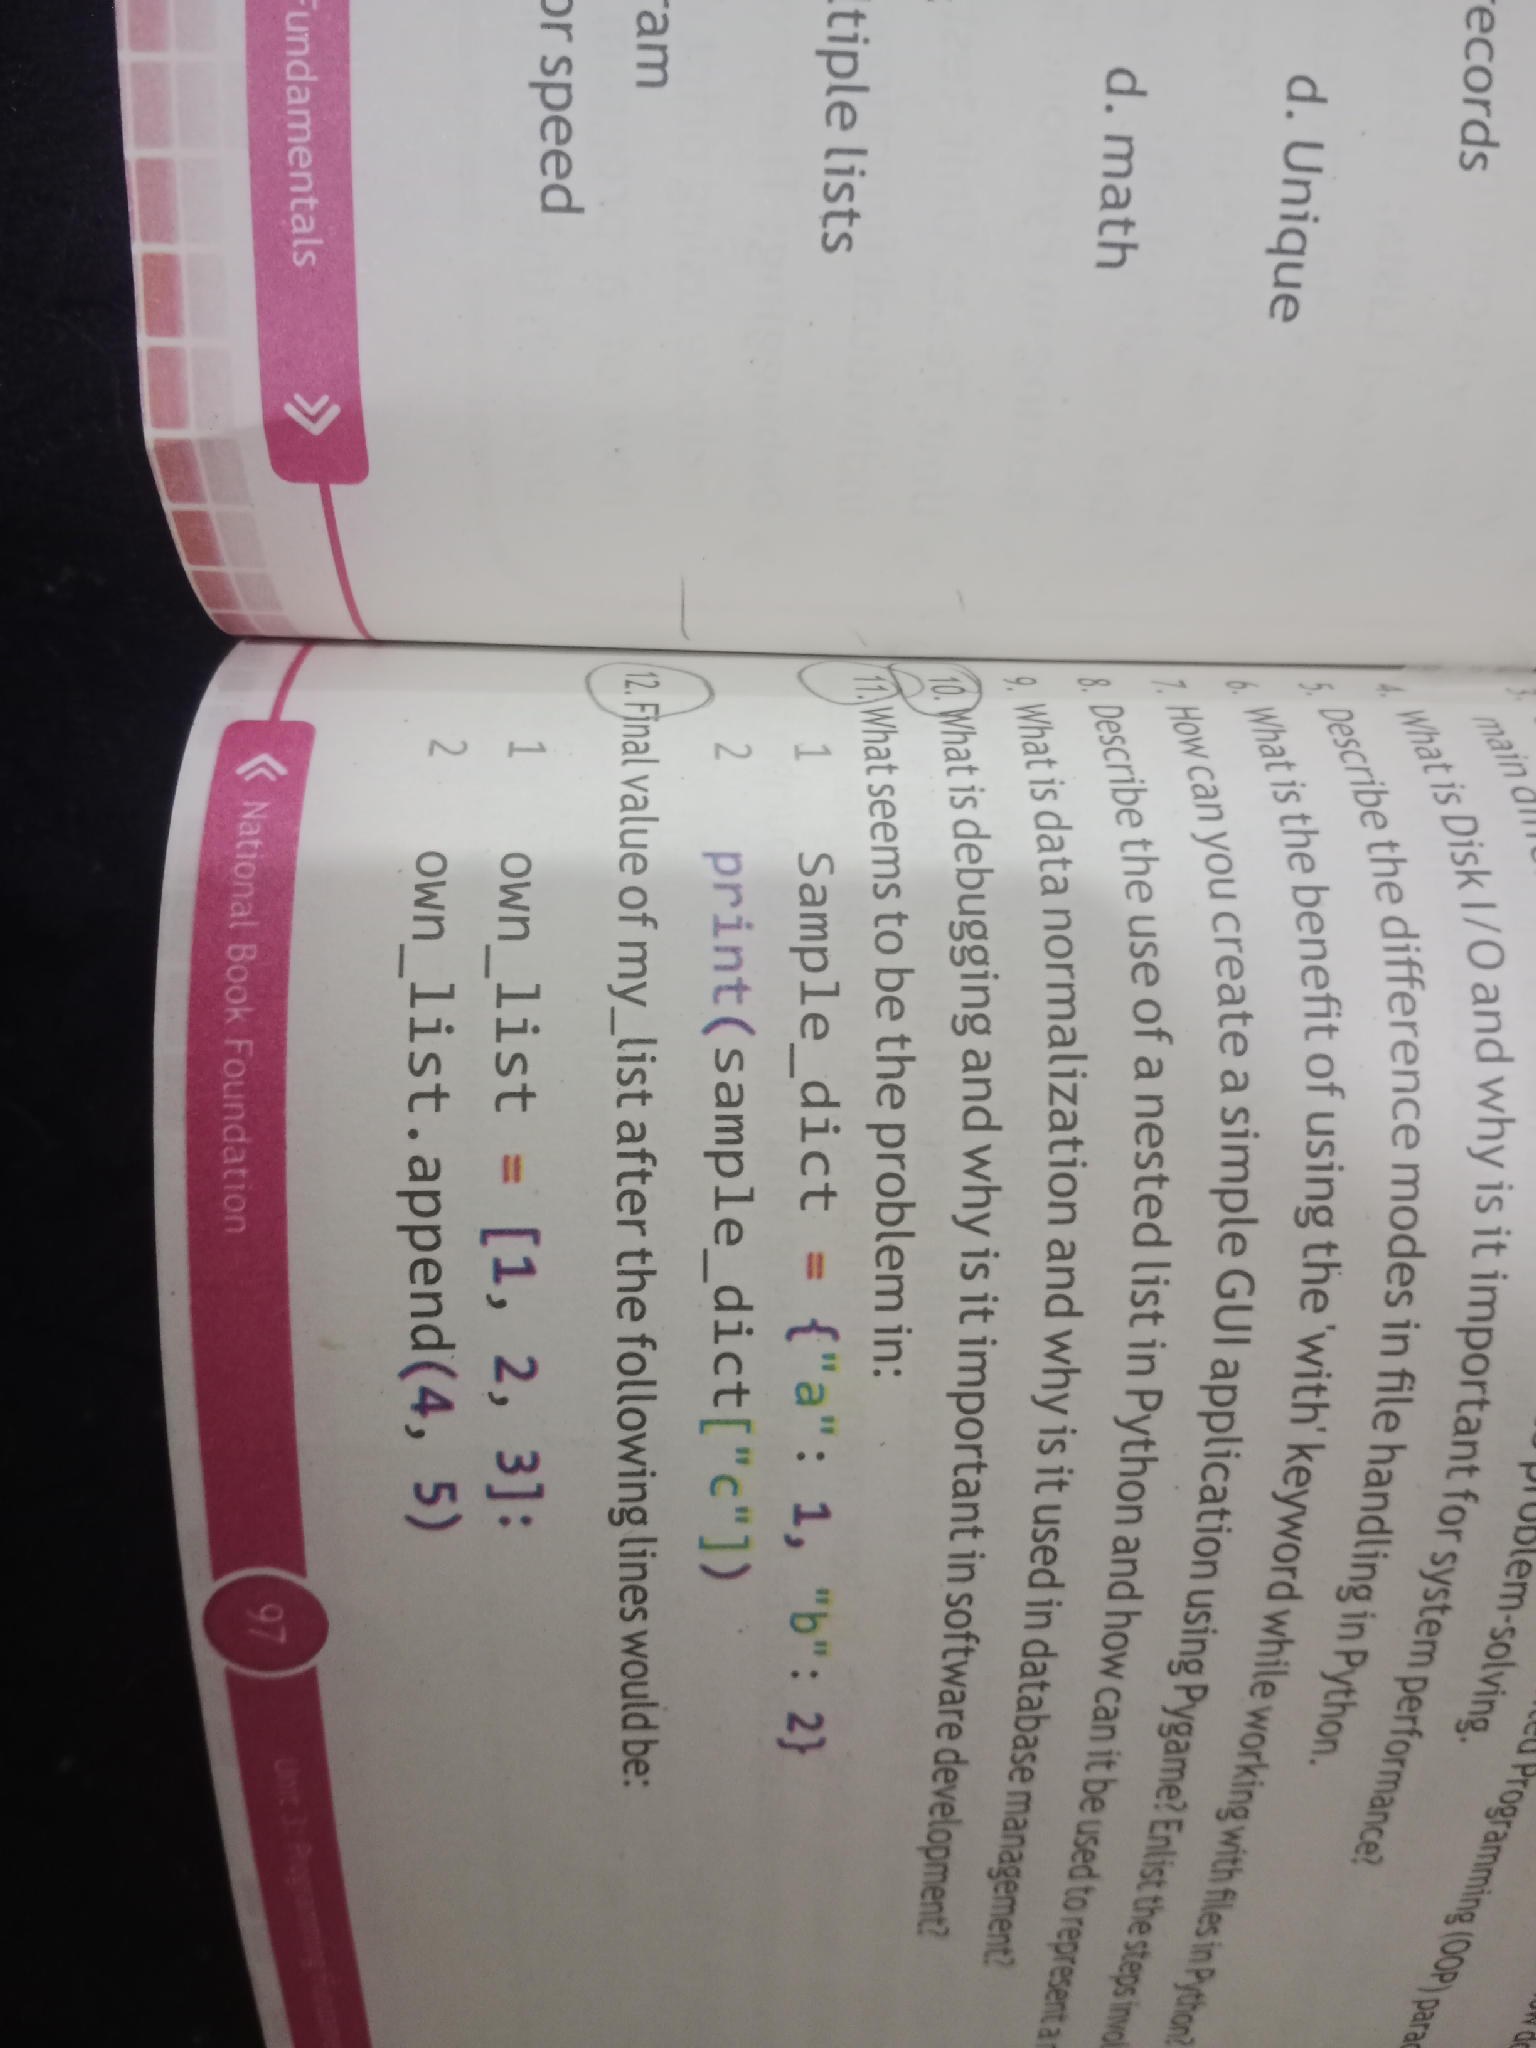 records
d. Unique
d. math
ltiple lists
ram
or speed
Fundamentals
problem-solving.
Programming (OOP)
4. What is Disk I/O and why is it important for system performance?
5. Describe the difference modes in file handling in Python.
6. What is the benefit of using the 'with' keyword while working with files in Python?
7. How can you create a simple GUI application using Pygame? Enlist the steps
8. Describe the use of a nested list in Python and how can it be used to represent a
9. What is data normalization and why is it used in database management?
10. What is debugging and why is it important in software development?
11. What seems to be the problem in:
1 Sample_dict = {"a": 1, "b": 2}
2 print(sample_dict["c"])
12. Final value of my_list after the following lines would be:
1 own_list = [1, 2, 3]:
2 own_list.append(4, 5)
National Book Foundation
97
Unit 3: Programming